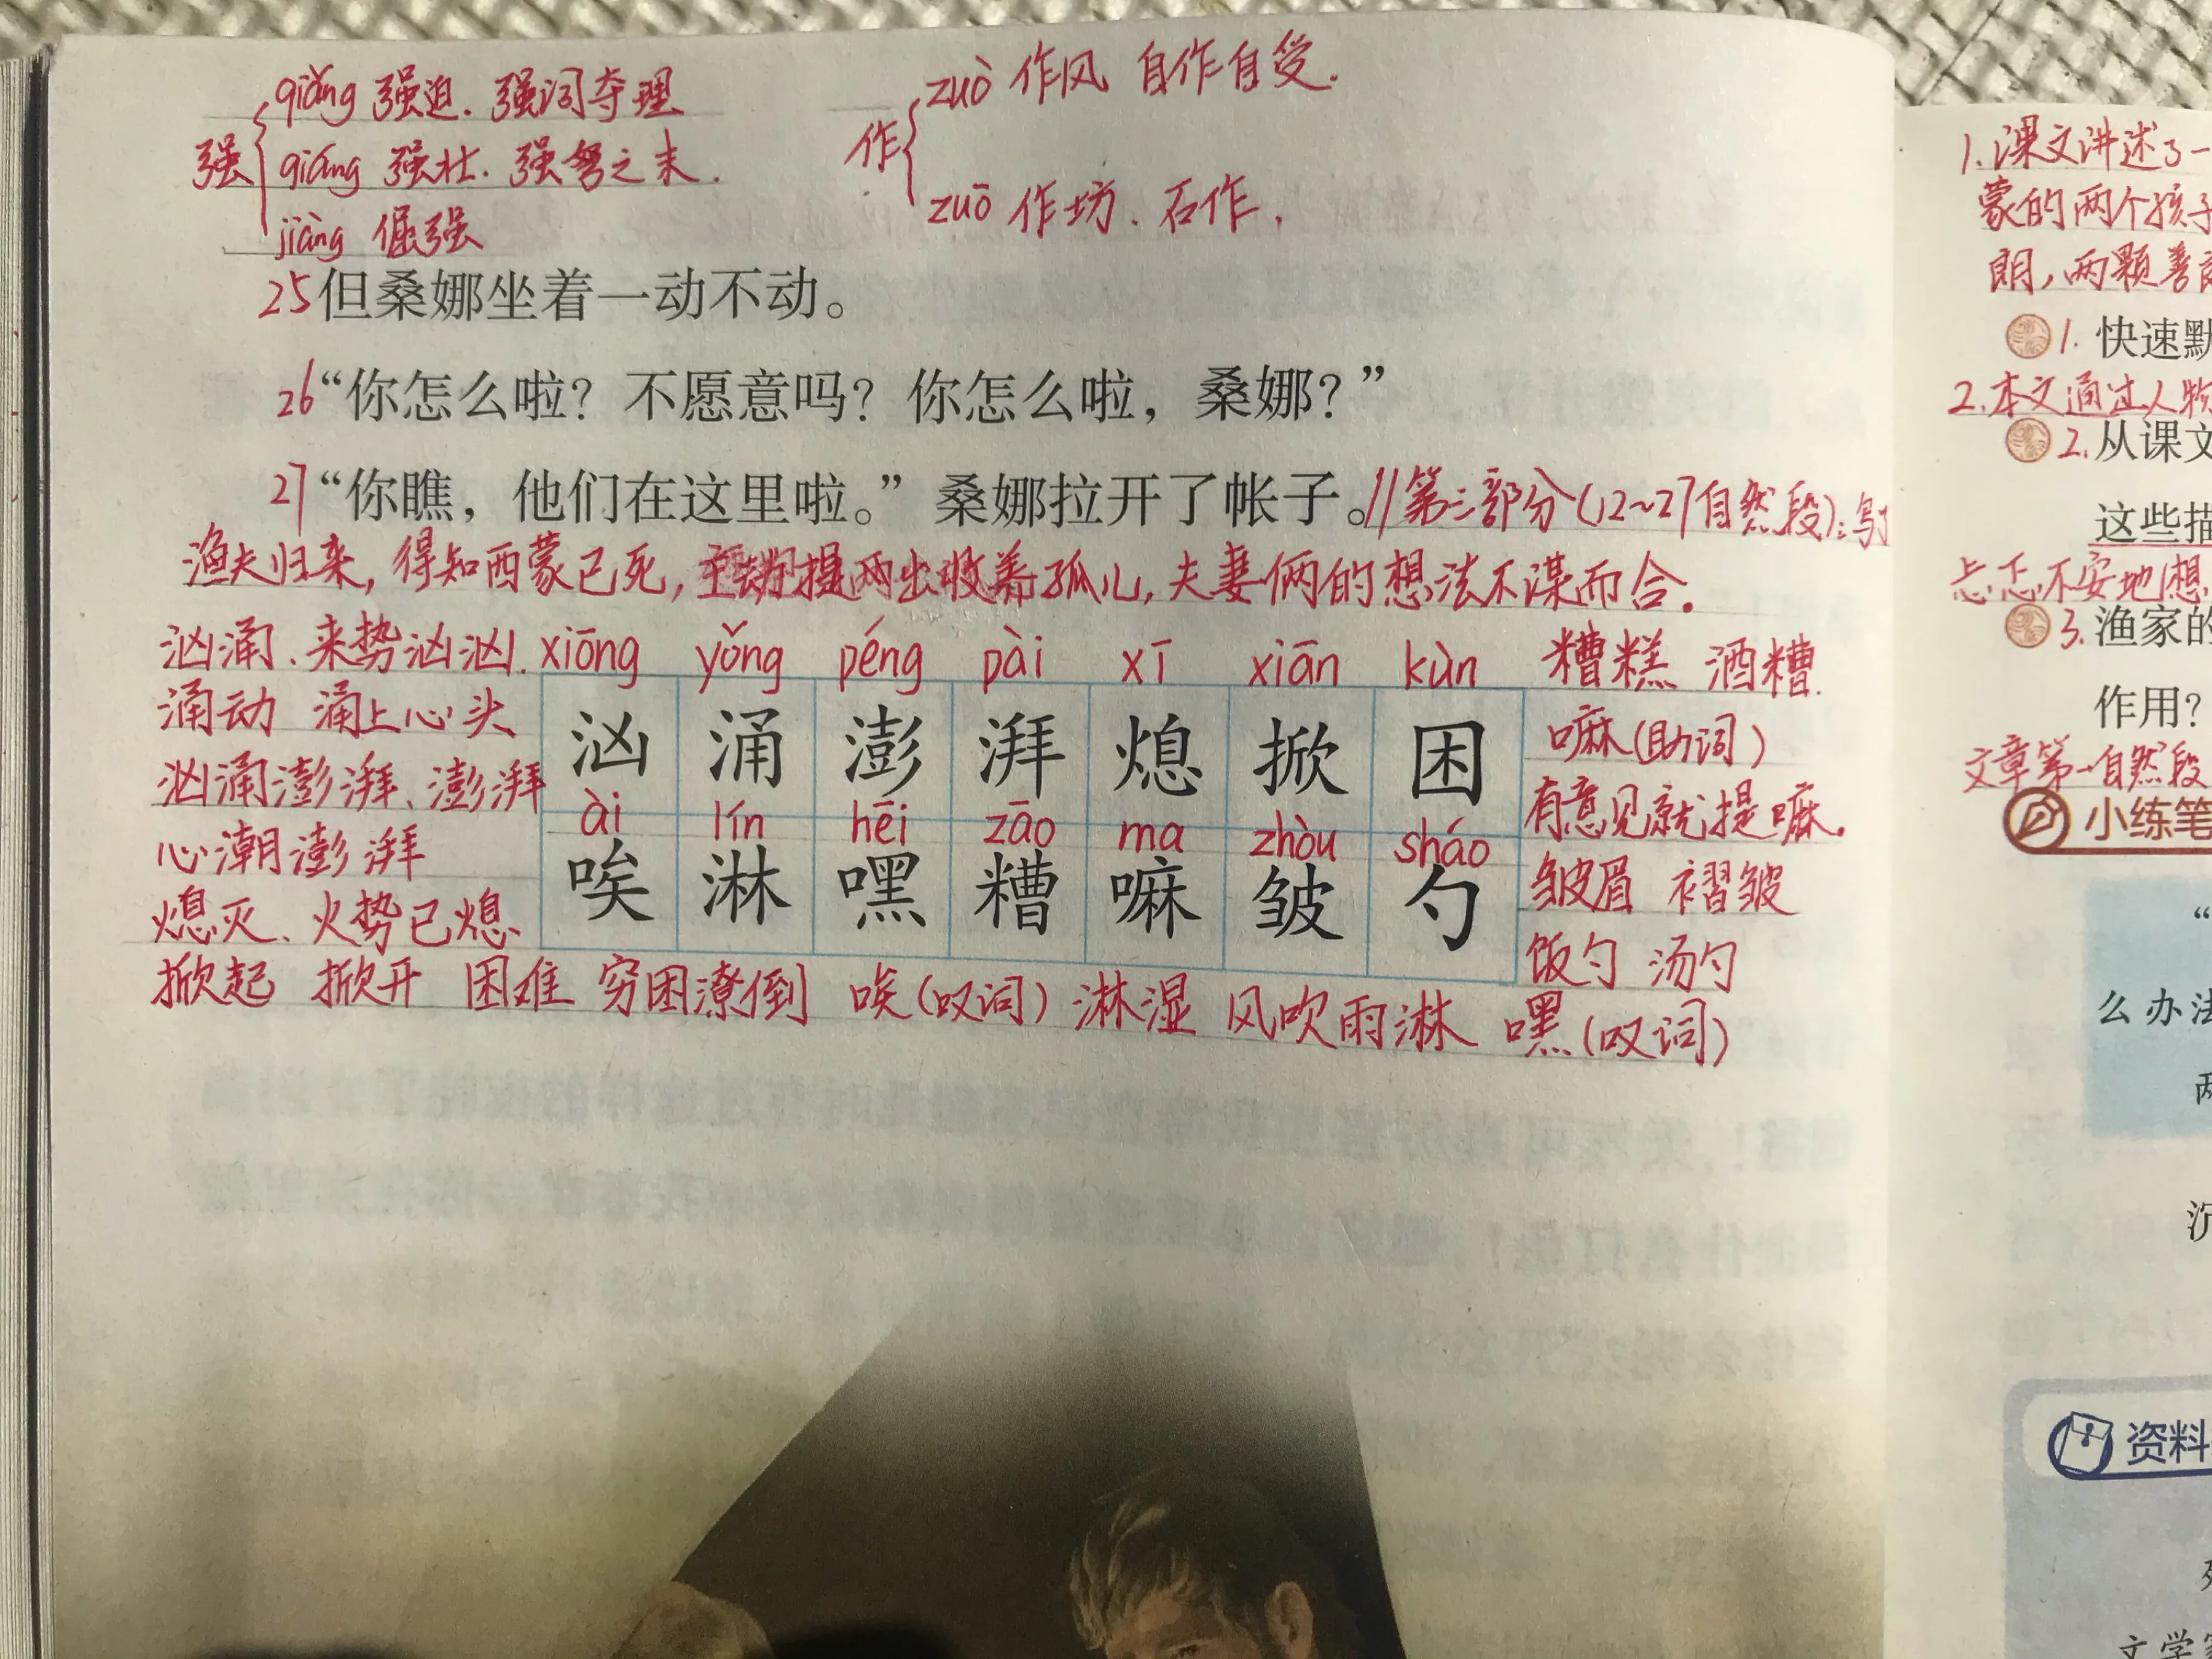 强
qiǎng 强迫. 强词夺理
qiáng 强壮. 强弩之末.
jiàng 倔强
作
zuò 作风 自作自受.
zuō 作坊. 石作.
25但桑娜坐着一动不动。
26“你怎么啦？不愿意吗？你怎么啦，桑娜？”
27“你瞧，他们在这里啦。”桑娜拉开了帐子。//第三部分(12~27自然段):写了
渔夫归来，得知西蒙已死，主动提出收养孤儿，夫妻俩的想法不谋而合.
汹涌. 来势汹汹.
涌动 涌上心头
汹涌澎湃、澎湃
心潮澎湃
熄灭、火势已熄
xiōng yǒng péng pài xī xiān kùn
汹 涌 澎 湃 熄 掀 困
ài lín hēi zāo ma zhòu sháo
唉 淋 嘿 糟 嘛 皱 勺
糟糕 酒糟.
嘛(助词)
有意见就提嘛.
皱眉 褶皱
饭勺 汤勺
掀起 掀开 困难 穷困潦倒 唉(叹词) 淋湿 风吹雨淋 嘿(叹词)
1.课文讲述了一
蒙的两个孩子
朗,两颗善
1. 快速默
2.本文通过人物
2.从课文
这些描
忐忑不安地想
3.渔家的
作用？
文章第一自然段
小练笔
“
么办法
两
沉
资料
文学